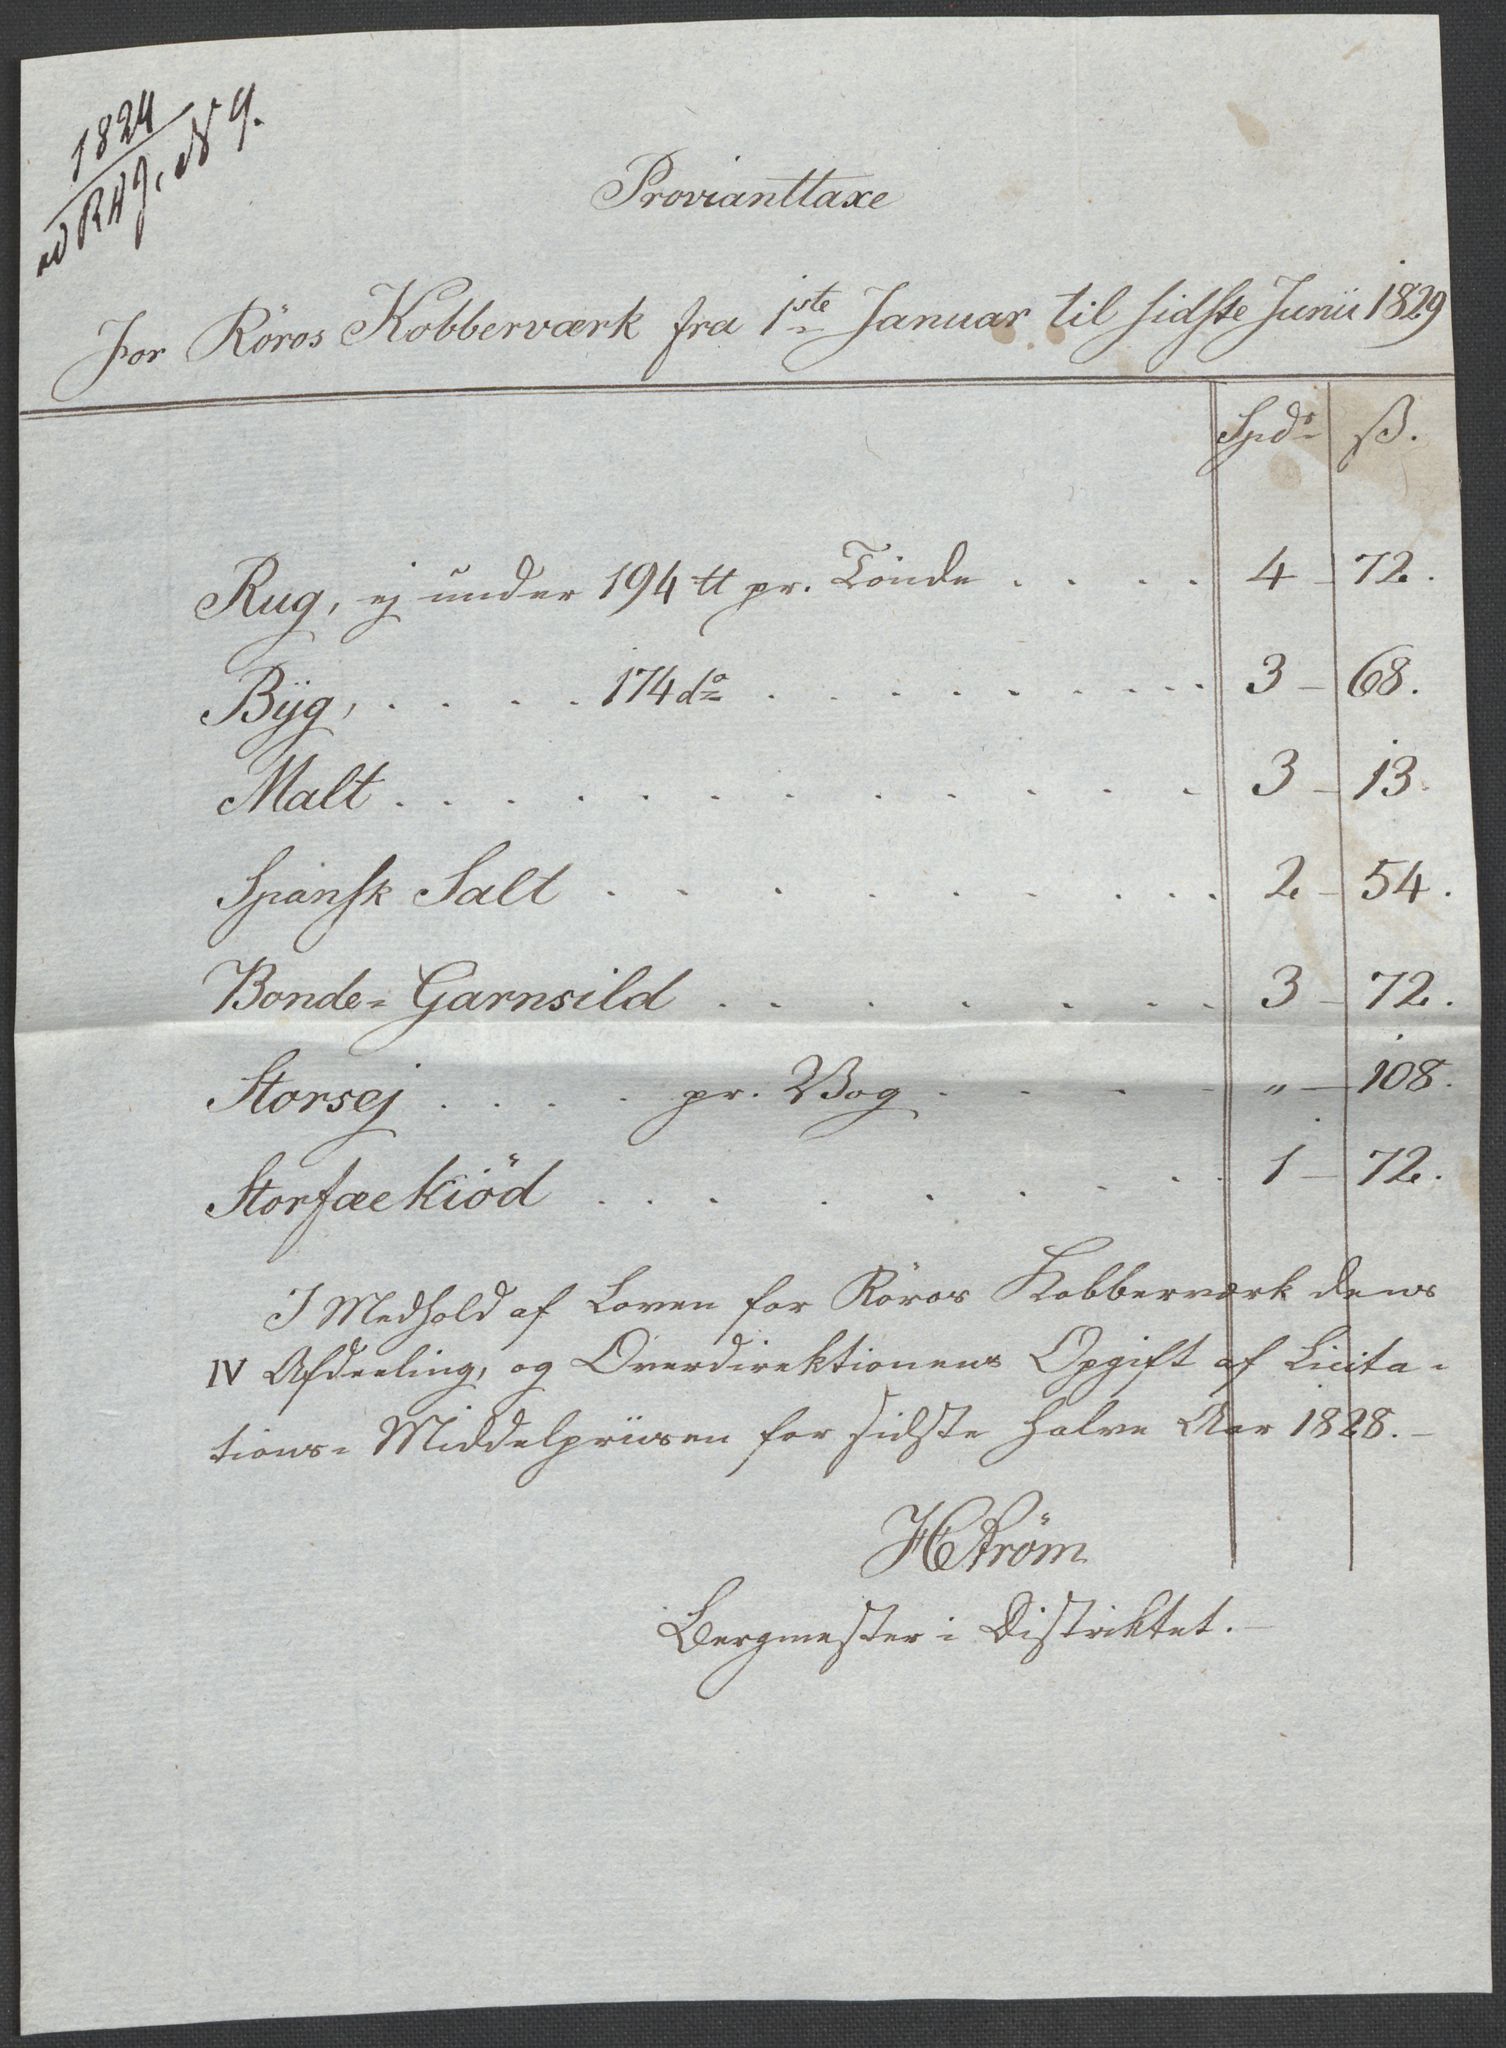 1824
ad RAJ. N 9.
Provianttaxe
for Röros Kobberværk fra 1ste Januar til sidste Junii 1829
Spdr ß.
Rug, ej under 194 ℔ pr. Tönde . . . . 4 - 72.
Byg, . . . . 174 do . . . . . . . . . 3 - 68.
Malt . . . . . . . . . . . . . 3 - 13.
Spansk Salt . . . . . . . . . 2 - 54.
Bonde= Garnsild . . . . . . . . 3 - 72.
Storsej . . . . pr. Vog . . . . „ - 108.
Storfækiöd . . . . . . . . . 1 - 72.
I Medhold af Loven for Röros Kobberværk dens
IV Afdeeling, og Overdirektionens Opgift af Licita=
tions= Middelpriisen for sidste halve Aar 1828.-
HStröm
Bergmester i Distriktet.-